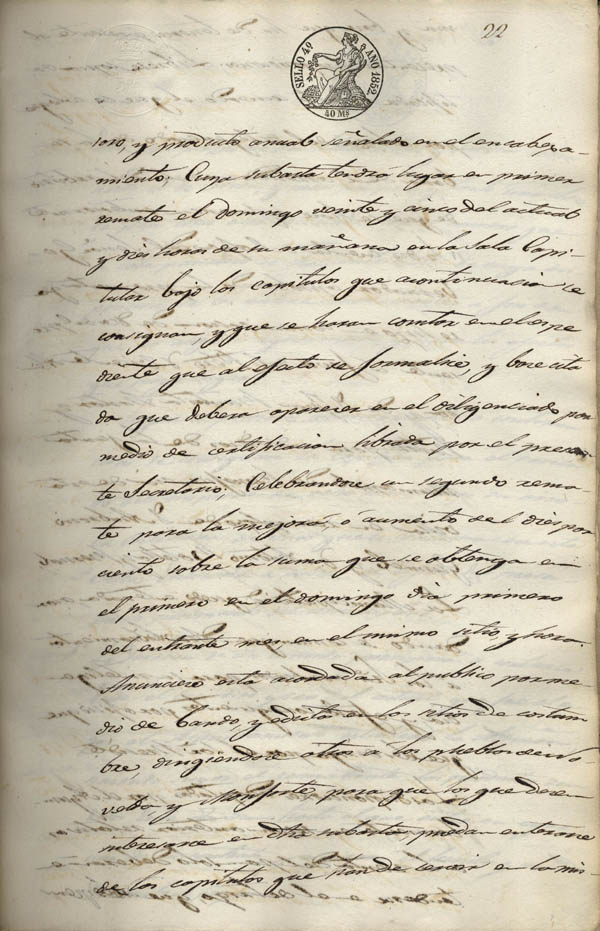 22
SELLO 4º AÑO 1852.
40 Ms
soro, y producto anual señalado en el encabeza-
miento; Cuya subasta tendra lugar en primer
remate el domingo veinte y cinco del actual
y dies horas de su mañana en la Sala Capi-
tular bajo los capitulos que acontinuacion se
consignan y que se haran constar en el espe
diente que al efecto se formalice, y
da que debera aparecer en el diligenciado por
medio de certificacion librada por el presen-
te Secretario; Celebrandose un segundo rema-
te para la mejora, ó aumento del dies por
ciento sobre la suma que se obtenga en
el primero en el domingo dia primero
del entrante mes en el mismo sitio, y hora.
Anunciese esta acordada al publico por me-
dio de bando, y edictos en los sitios de costum
bre, dirigiendose otros a los pueblos de No-
velda, y Monforte para que los que deseen
interesarse en dha subasta, puedan enterarse
de los capitulos que han de servir en la mis-